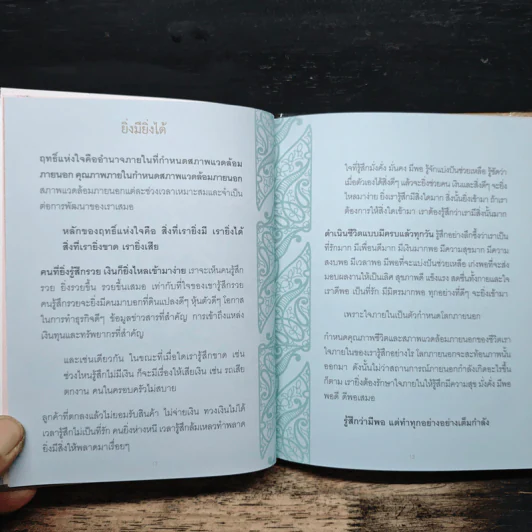 ยิ่งมียิ่งได้
ฤทธิ์แห่งใจคืออำนาจภายในที่กำหนดสภาพแวดล้อม
ภายนอก คุณภาพภายในกำหนดสภาพแวดล้อมภายนอก
สภาพแวดล้อมภายนอกแต่ละช่วงเวลาเหมาะสมและจำเป็น
ต่อการพัฒนาของเราเสมอ
หลักของฤทธิ์แห่งใจคือ สิ่งที่เรายิ่งมี เรายิ่งได้
สิ่งที่เรายิ่งขาด เรายิ่งเสีย
คนที่ยิ่งรู้สึกรวย เงินก็ยิ่งไหลเข้ามาง่าย เราจะเห็นคนรู้สึก
รวย ยิ่งรวยขึ้น รวยขึ้นเสมอ เท่ากับที่ใจของเขารู้สึกรวย
คนรู้สึกรวยจะยิ่งมีคนมาบอกที่ดินแปลงดีๆ หุ้นตัวดีๆ โอกาส
ในการทำธุรกิจดีๆ ข้อมูลข่าวสารที่สำคัญ การเข้าถึงแหล่ง
เงินทุนและทรัพยากรที่สำคัญ
และเช่นเดียวกัน ในขณะที่เมื่อใดเรารู้สึกขาด เช่น
ช่วงไหนรู้สึกไม่มีเงิน ก็จะมีเรื่องให้เสียเงิน เช่น รถเสีย
ตกงาน คนในครอบครัวไม่สบาย
ลูกค้าที่ตกลงแล้วไม่ยอมรับสินค้า ไม่จ่ายเงิน ทวงเงินไม่ได้
เวลารู้สึกไม่เป็นที่รัก คนยิ่งห่างหนี เวลารู้สึกล้มเหลวทำพลาด
ยิ่งมีสิ่งให้พลาดมาเรื่อยๆ
ใจที่รู้สึกมั่งคั่ง มั่นคง มีพอ รู้จักแบ่งปันช่วยเหลือ รู้ชัดว่า
เมื่อตัวเองได้สิ่งดีๆ แล้วจะยิ่งช่วยคน เงินและสิ่งดีๆ จะยิ่ง
ไหลมาง่าย ยิ่งเรารู้สึกมีสิ่งใดมาก สิ่งนั้นยิ่งเข้ามา ถ้าเรา
ต้องการให้สิ่งใดเข้ามา เราต้องรู้สึกว่าเรามีสิ่งนั้นมาก
ดำเนินชีวิตแบบมีครบแล้วทุกวัน รู้สึกอย่างลึกซึ้งว่าเราเป็น
ที่รักมาก มีเพื่อนดีมาก มีเงินมากพอ มีความสุขมาก มีความ
สงบพอ มีเวลาพอ มีพอที่จะแบ่งปันช่วยเหลือ เก่งพอที่จะส่ง
มอบผลงานให้เป็นเลิศ สุขภาพดี แข็งแรง สดชื่นทั้งกายและใจ
เราดีพอ เป็นที่รัก มีมิตรมากพอ ทุกอย่างที่ดีๆ จะยิ่งเข้ามา
เพราะใจภายในเป็นตัวกำหนดโลกภายนอก
กำหนดคุณภาพชีวิตและสภาพแวดล้อมภายนอกของชีวิตเรา
ใจภายในของเรารู้สึกอย่างไร โลกภายนอกจะสะท้อนภาพนั้น
ออกมา ดังนั้นไม่ว่าสถานการณ์ภายนอกกำลังเกิดอะไรขึ้น
ก็ตาม เรายิ่งต้องรักษาใจภายในให้รู้สึกมีความสุข มั่งคั่ง มีพอ
พอดี ดีพอเสมอ
รู้สึกว่ามีพอ แต่ทำทุกอย่างอย่างเต็มกำลัง